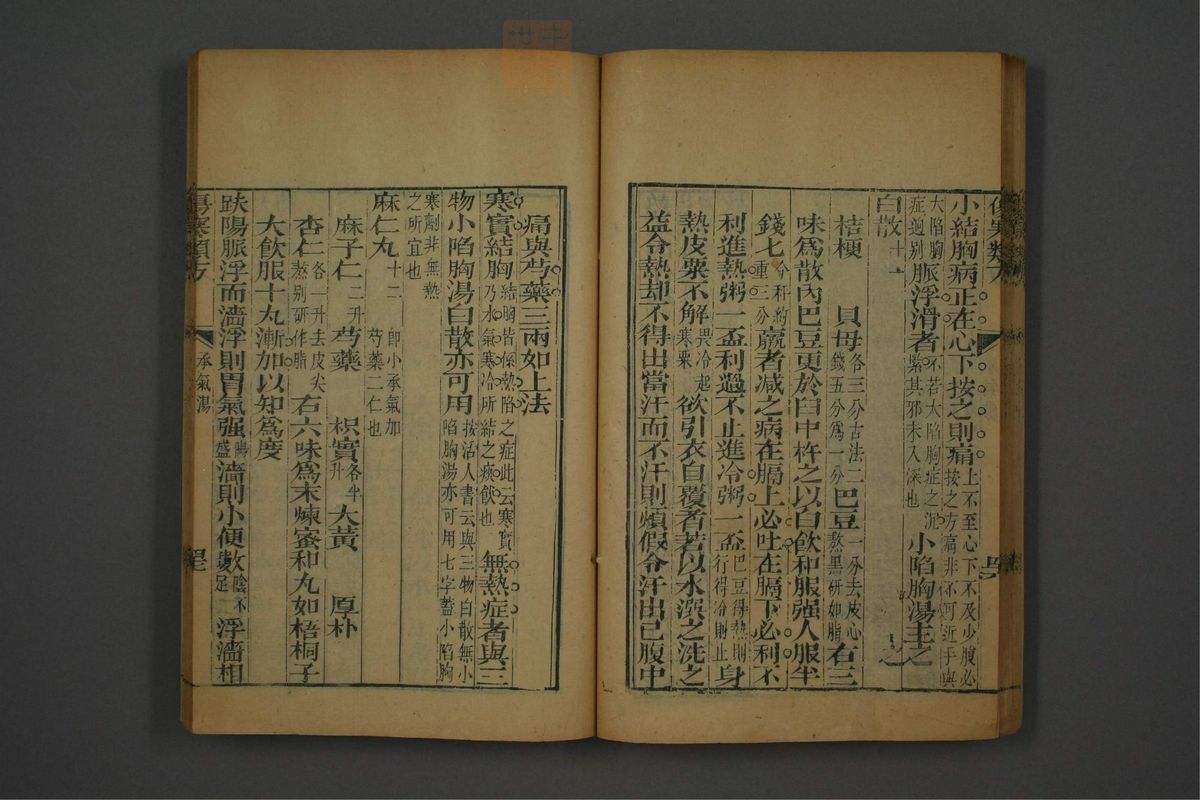 小結胸病正在心下按之則痛上不至心下不及少腹必按之方痛非不可近手與
大陷胸症逈别脈浮滑者不若大陷胸症之沉緊其邪未入深也小陷胸湯主之
白散十一
桔梗 貝母各三分古法二錢五分為一分巴豆一分去皮心熬黑研如脂右三
味爲散內巴豆更於臼中杵之以白飲和服强人服半
錢七今秤約重三分羸者减之病在膈上必吐在膈下必利不
利進熱粥一盃利過不止進冷粥一盃巴豆得熱則行得冷則止身
熱皮粟不解畏冷起寒粟欲引衣自覆者若以水潠之洗之
益令熱却不得出當汗而不汗則煩假令汗出已腹中
痛與芍藥三兩如上法
寒實結胸結胸皆係熱陷之症此云寒實乃水氣寒冷所結之痰飲也無熱症者與三
物小陷胸湯白散亦可用按活人書云與三物白散無小陷胸湯亦可用七字蓋小陷胸
寒劑非無熱之所宜也
麻仁丸十二 卽小承氣加芍藥二仁也
麻子仁二升 芍藥 枳實各半升 大黃 厚朴
杏仁各一升去皮尖熬别研作脂 右六味爲末煉蜜和丸如梧桐子
大飲服十丸漸加以知爲度
趺陽脈浮而濇浮則胃氣强陽盛濇則小便數陰不足浮濇相
傷寒類方 承氣湯